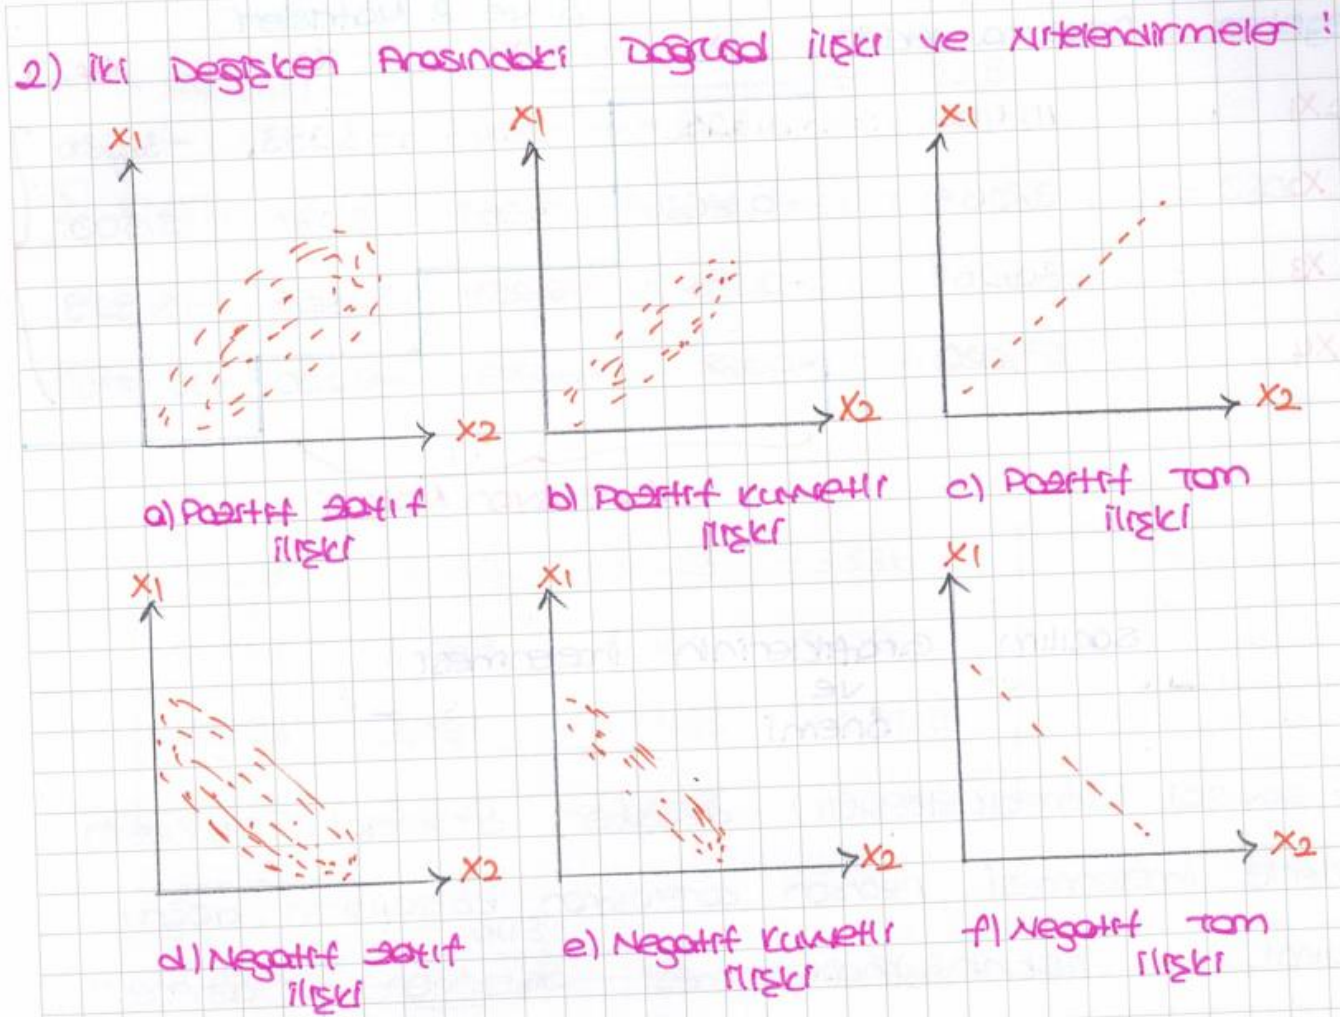 2) İki Değişken Arasındaki Doğrusal ilişki ve Nitelendirmeler :
X1
X2
a) Pozitif Zayıf
ilişki
X1
X2
b) Pozitif Kuvvetli
ilişki
X1
X2
c) Pozitif Tam
ilişki
X1
X2
d) Negatif Zayıf
ilişki
X1
X2
e) Negatif Kuvvetli
ilişki
X1
X2
f) Negatif Tam
ilişki